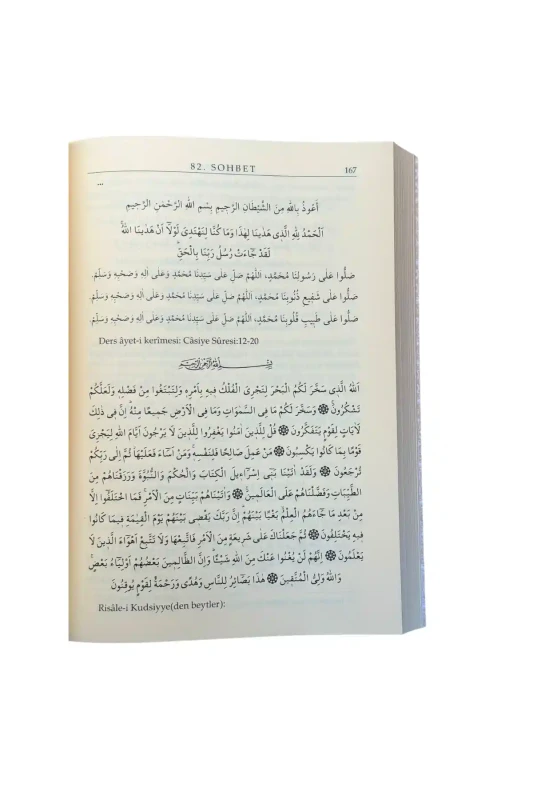 82. SOHBET 167
...
أَعُوذُ بِاللّٰهِ مِنَ الشَّيْطَانِ الرَّجِيمِ بِسْمِ اللّٰهِ الرَّحْمٰنِ الرَّحِيمِ
اَلْحَمْدُ لِلّٰهِ الَّذِى هَدٰينَا لِهٰذَا وَمَا كُنَّا لِنَهْتَدِىَ لَوْلَٓا أَنْ هَدٰينَا اللّٰهُ
لَقَدْ جَٓاءَتْ رُسُلُ رَبِّنَا بِالْحَقِّ
صَلُّوا عَلٰى رَسُولِنَا مُحَمَّدٍ، اَللّٰهُمَّ صَلِّ عَلٰى سَيِّدِنَا مُحَمَّدٍ وَعَلٰى اٰلِهِ وَصَحْبِهِ وَسَلِّمْ.
صَلُّوا عَلٰى شَفِيعِ ذُنُوبِنَا مُحَمَّدٍ، اَللّٰهُمَّ صَلِّ عَلٰى سَيِّدِنَا مُحَمَّدٍ وَعَلٰى اٰلِهِ وَصَحْبِهِ وَسَلِّمْ.
صَلُّوا عَلٰى طَبِيبِ قُلُوبِنَا مُحَمَّدٍ، اَللّٰهُمَّ صَلِّ عَلٰى سَيِّدِنَا مُحَمَّدٍ وَعَلٰى اٰلِهِ وَصَحْبِهِ وَسَلِّمْ.
Ders âyet-i kerîmesi: Câsiye Sûresi:12-20
بِسْمِ اللّٰهِ الرَّحْمٰنِ الرَّحِيمِ
اَللّٰهُ الَّذِى سَخَّرَ لَكُمُ الْبَحْرَ لِتَجْرِىَ الْفُلْكُ فِيهِ بِاَمْرِهِ وَلِتَبْتَغُوا مِنْ فَضْلِهِ وَلَعَلَّكُمْ
تَشْكُرُونَ ۞ وَسَخَّرَ لَكُمْ مَا فِى السَّمٰوَاتِ وَمَا فِى الْاَرْضِ جَمِيعًا مِنْهُ اِنَّ فِى ذٰلِكَ
لَاٰيَاتٍ لِقَوْمٍ يَتَفَكَّرُونَ ۞ قُلْ لِلَّذِينَ اٰمَنُوا يَغْفِرُوا لِلَّذِينَ لَا يَرْجُونَ اَيَّامَ اللّٰهِ لِيَجْزِىَ
قَوْمًا بِمَا كَانُوا يَكْسِبُونَ ۞ مَنْ عَمِلَ صَالِحًا فَلِنَفْسِهِ وَمَنْ اَسَٓاءَ فَعَلَيْهَا ثُمَّ اِلٰى رَبِّكُمْ
تُرْجَعُونَ ۞ وَلَقَدْ اٰتَيْنَا بَنِٓى اِسْرَٓاءِيلَ الْكِتَابَ وَالْحُكْمَ وَالنُّبُوَّةَ وَرَزَقْنَاهُمْ مِنَ
الطَّيِّبَاتِ وَفَضَّلْنَاهُمْ عَلَى الْعَالَمِينَ ۞ وَاٰتَيْنَاهُمْ بَيِّنَاتٍ مِنَ الْاَمْرِ فَمَا اخْتَلَفُٓوا اِلَّا
مِنْ بَعْدِ مَا جَٓاءَهُمُ الْعِلْمُ بَغْيًا بَيْنَهُمْ اِنَّ رَبَّكَ يَقْضِى بَيْنَهُمْ يَوْمَ الْقِيٰمَةِ فِيمَا كَانُوا
فِيهِ يَخْتَلِفُونَ ۞ ثُمَّ جَعَلْنَاكَ عَلٰى شَرِيعَةٍ مِنَ الْاَمْرِ فَاتَّبِعْهَا وَلَا تَتَّبِعْ اَهْوَٓاءَ الَّذِينَ لَا
يَعْلَمُونَ ۞ اِنَّهُمْ لَنْ يُغْنُوا عَنْكَ مِنَ اللّٰهِ شَيْئًا وَاِنَّ الظَّالِمِينَ بَعْضُهُمْ اَوْلِيَٓاءُ بَعْضٍ
وَاللّٰهُ وَلِىُّ الْمُتَّقِينَ ۞ هٰذَا بَصَٓائِرُ لِلنَّاسِ وَهُدًى وَرَحْمَةٌ لِقَوْمٍ يُوقِنُونَ
Risâle-i Kudsiyye(den beytler):